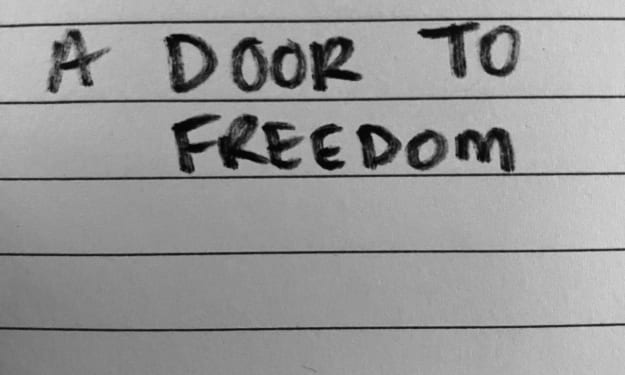 A DOOR TO
FREEDOM